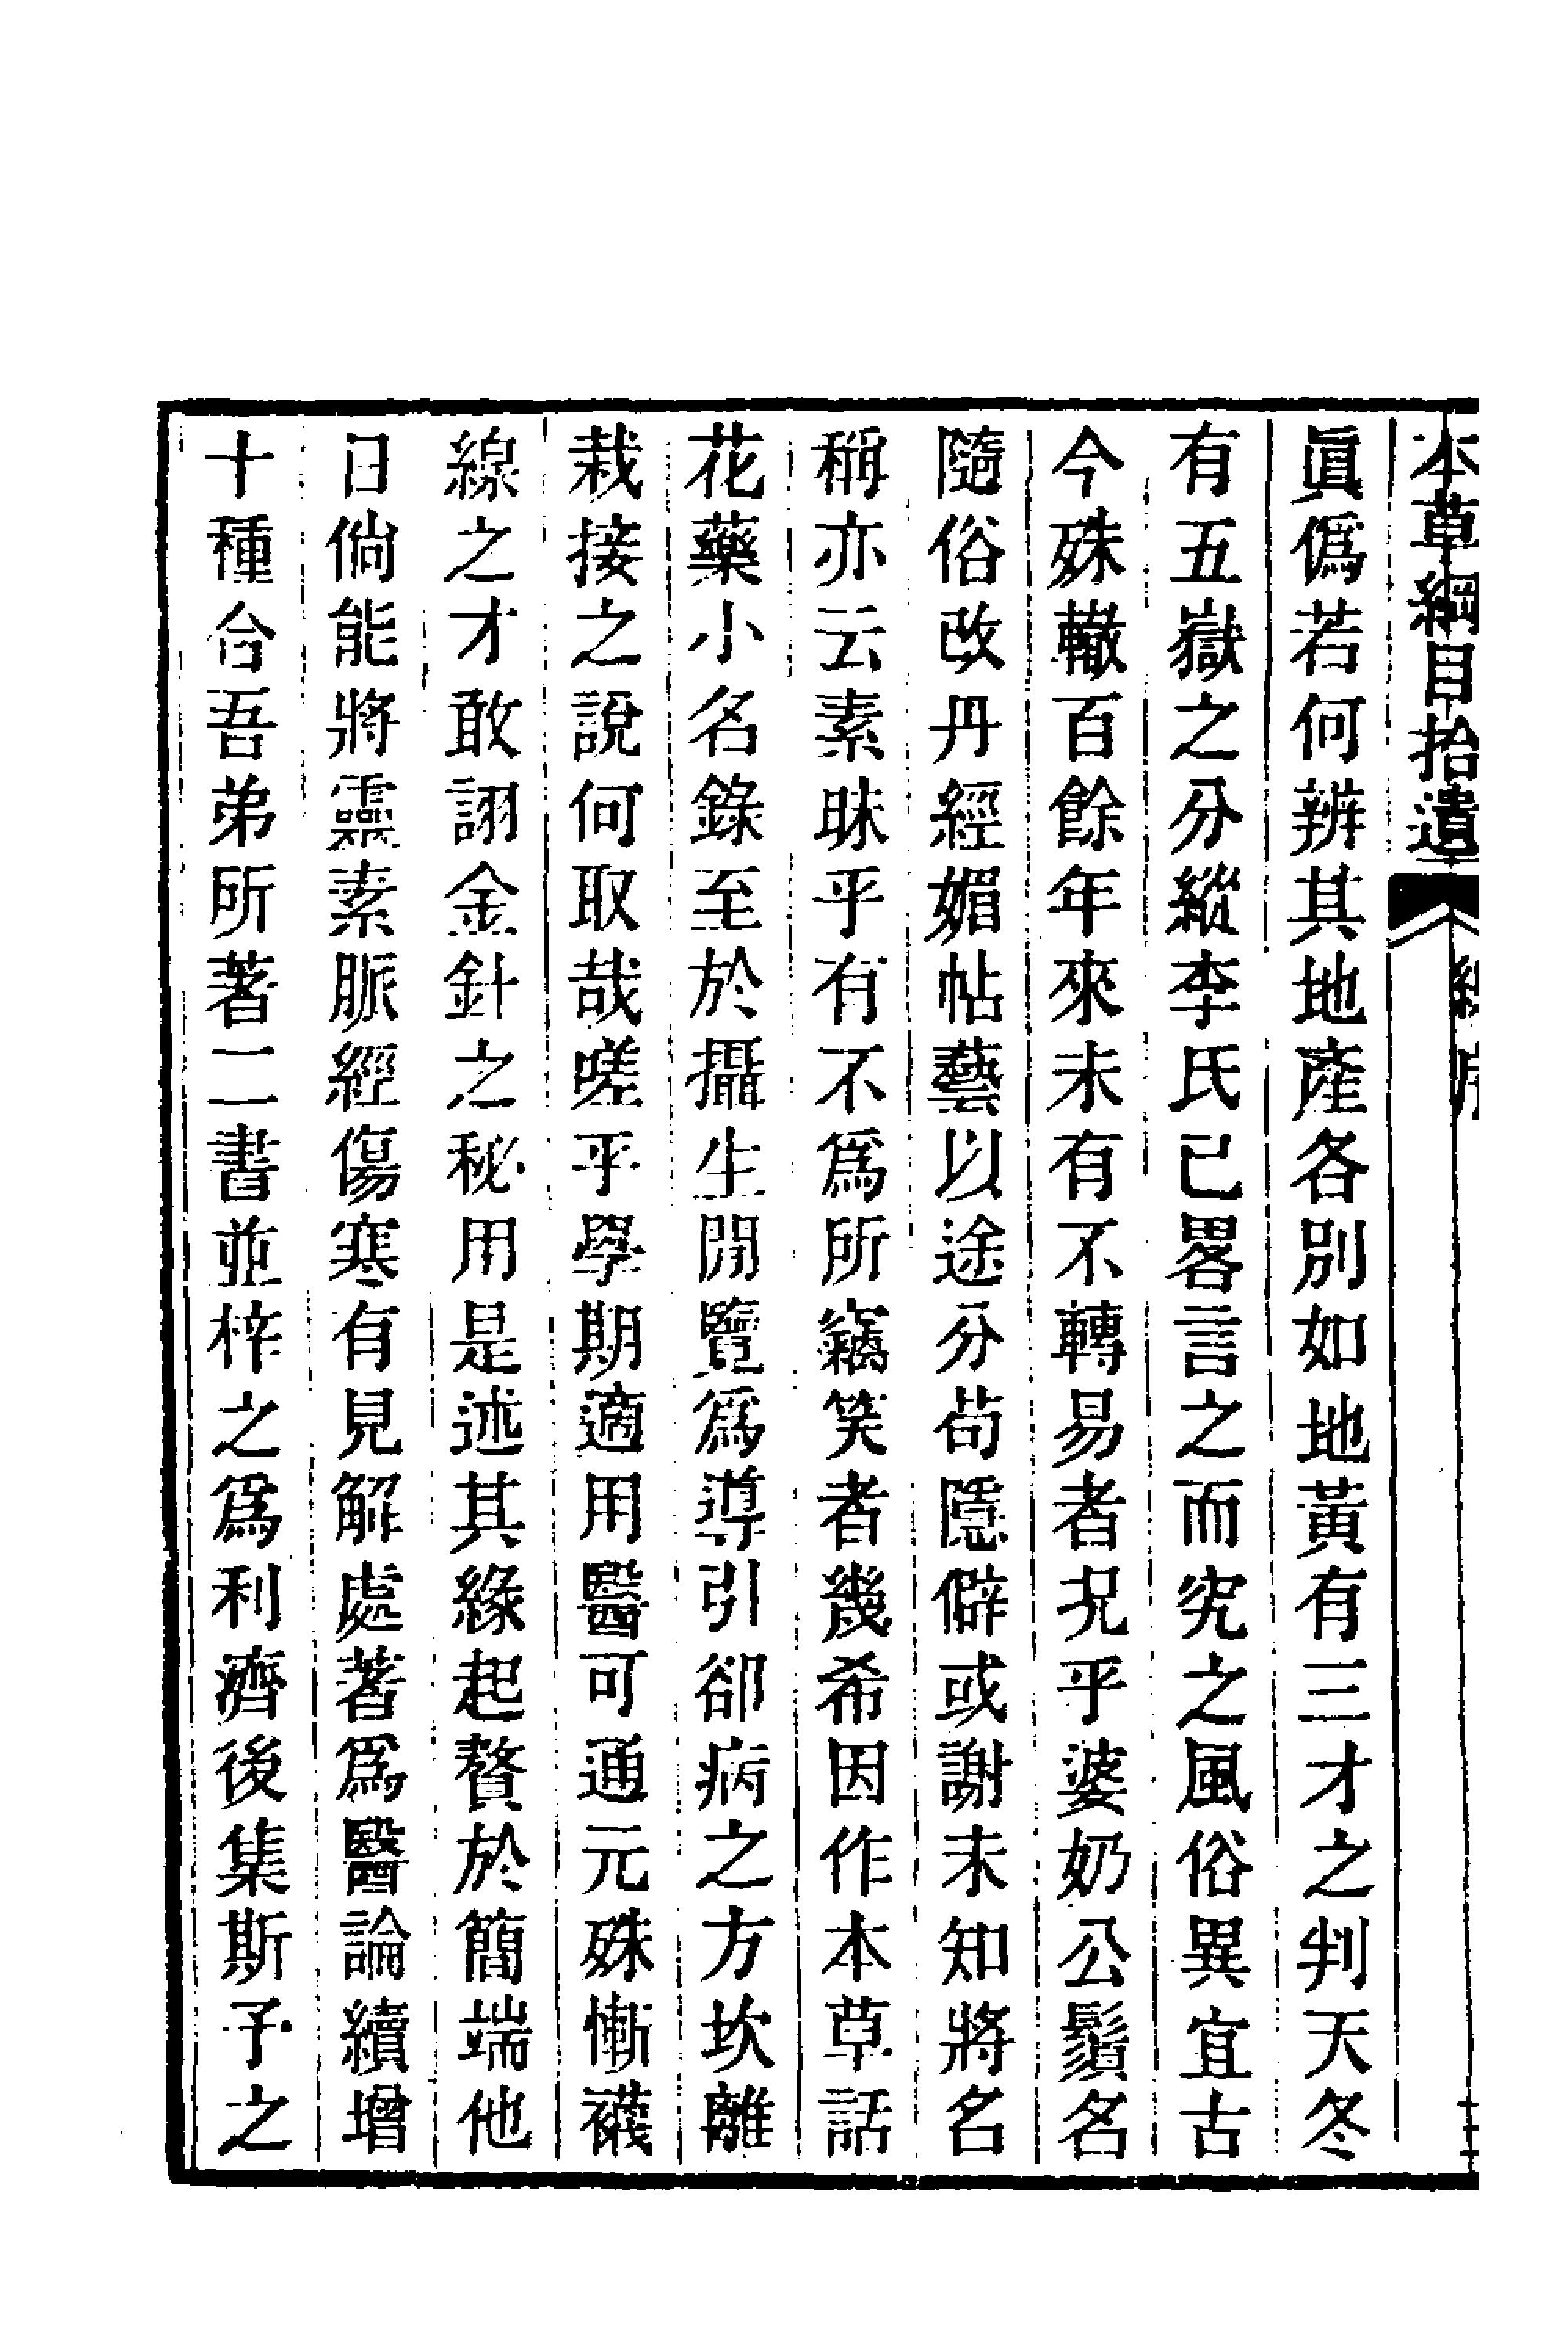 本草綱目拾遺
眞僞若何辨其地產各別如地黃有三才之判天冬
有五嶽之分縱李氏已畧言之而究之風俗異宜古
今殊轍百餘年來未有不轉易者況乎婆奶公鬚名
隨俗改丹經媚帖藝以途分茍隱僻或謝未知將名
稱亦云素昧乎有不爲所竊笑者幾希因作本草話
花藥小名錄至於攝生閒覽爲導引卻病之方坎離
栽接之說何取哉嗟乎學期適用醫可通元殊慚襪
線之才敢詡金針之秘用是述其緣起贅於簡端他
日倘能將靈素脈經傷寒有見解處著爲醫論續增
十種合吾弟所著二書並梓之爲利濟後集斯予之